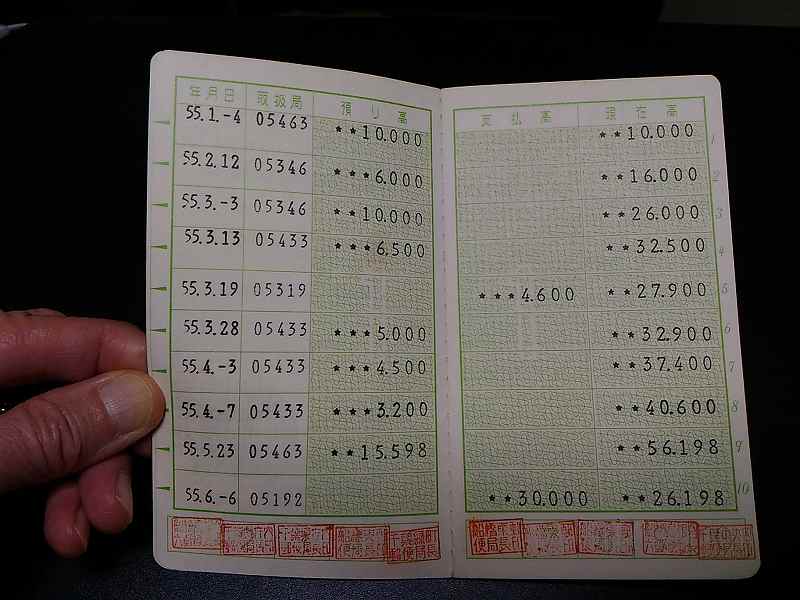 年月日 取扱局 預り高 支払高 現在高
55.1.-4 05463 **10.000 **10.000 1
55.2.12 05346 ***6.000 **16.000 2
55.3.-3 05346 **10.000 **26.000 3
55.3.13 05433 ***6.500 **32.500 4
55.3.19 05319 ***4.600 **27.900 5
55.3.28 05433 ***5.000 **32.900 6
55.4.-3 05433 ***4.500 **37.400 7
55.4.-7 05433 ***3.200 **40.600 8
55.5.23 05463 **15.598 **56.198 9
55.6.-6 05192 **30.000 **26.198 10